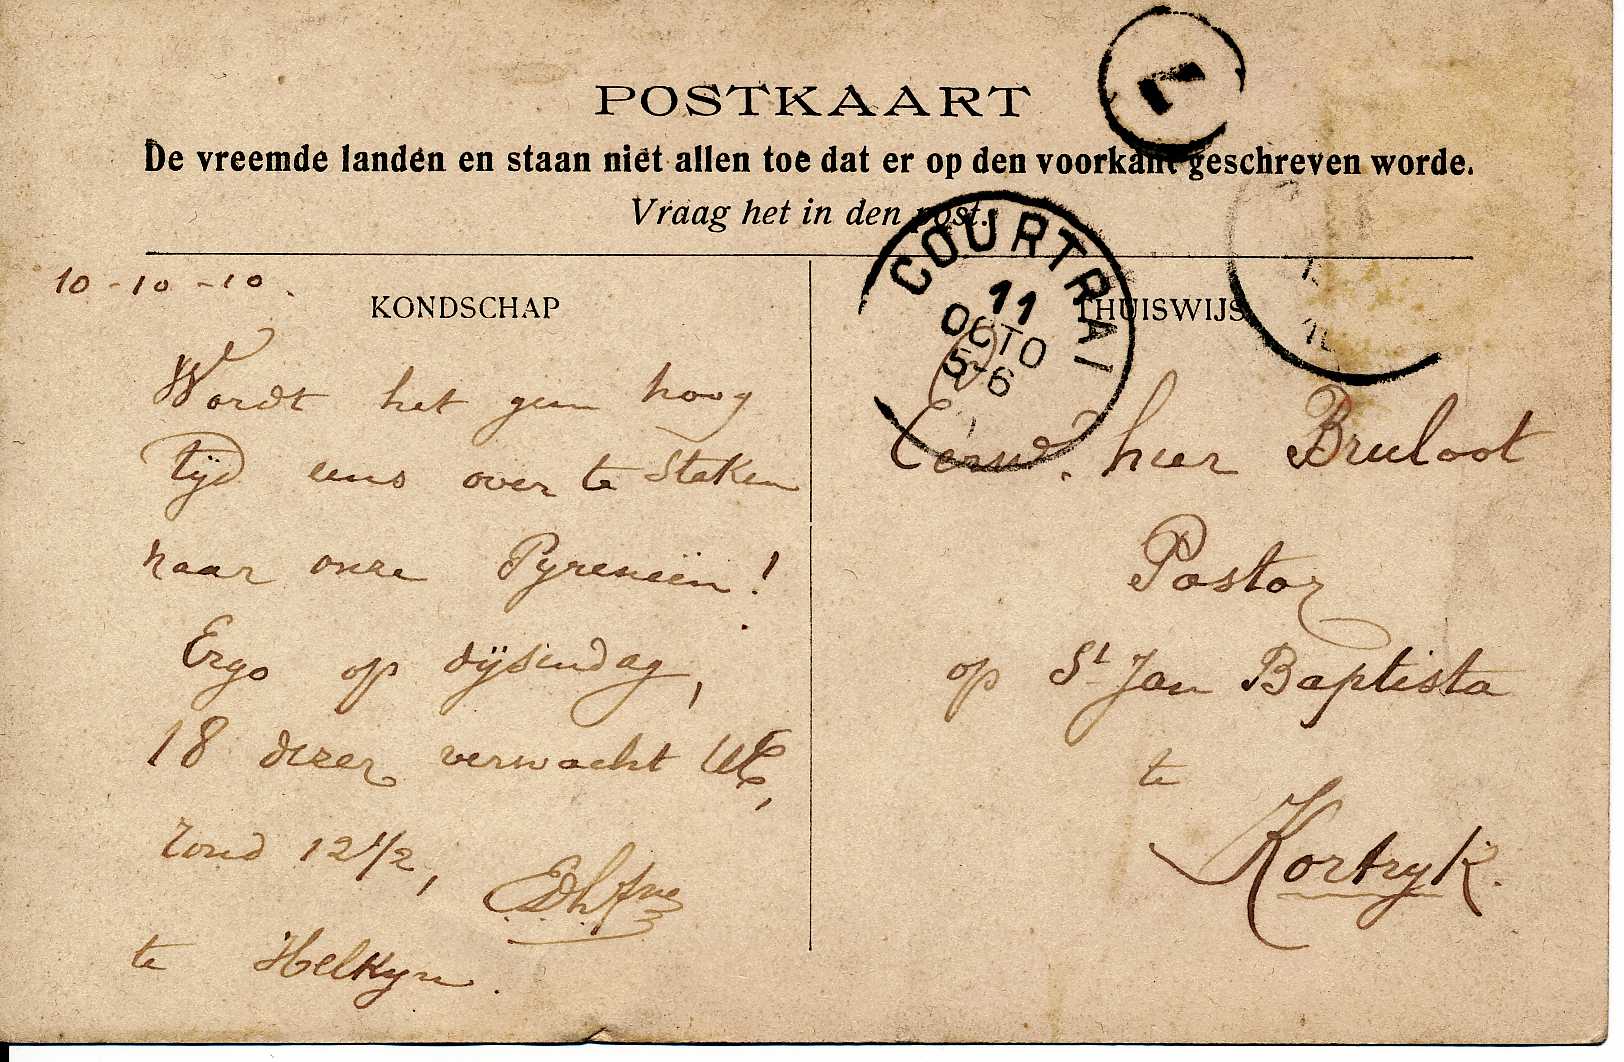 POSTKAART
De vreemde landen en staan niet allen toe dat er op den voorkant geschreven worde.
Vraag het in den post.
10-10-10.
KONDSCHAP
Wordt het geen hoog
tijd eens over te steken
naar onze Pyreneën!
Ergo op dijsendag,
18 dezer verwacht UE,
rond 12 1/2,
te Helkyn.
THUISWIJS
COURTRAI
11
OCTO
5-6
Eerwd. heer Bruloot
Pastor
op St Jan Baptista
te
Kortryk.